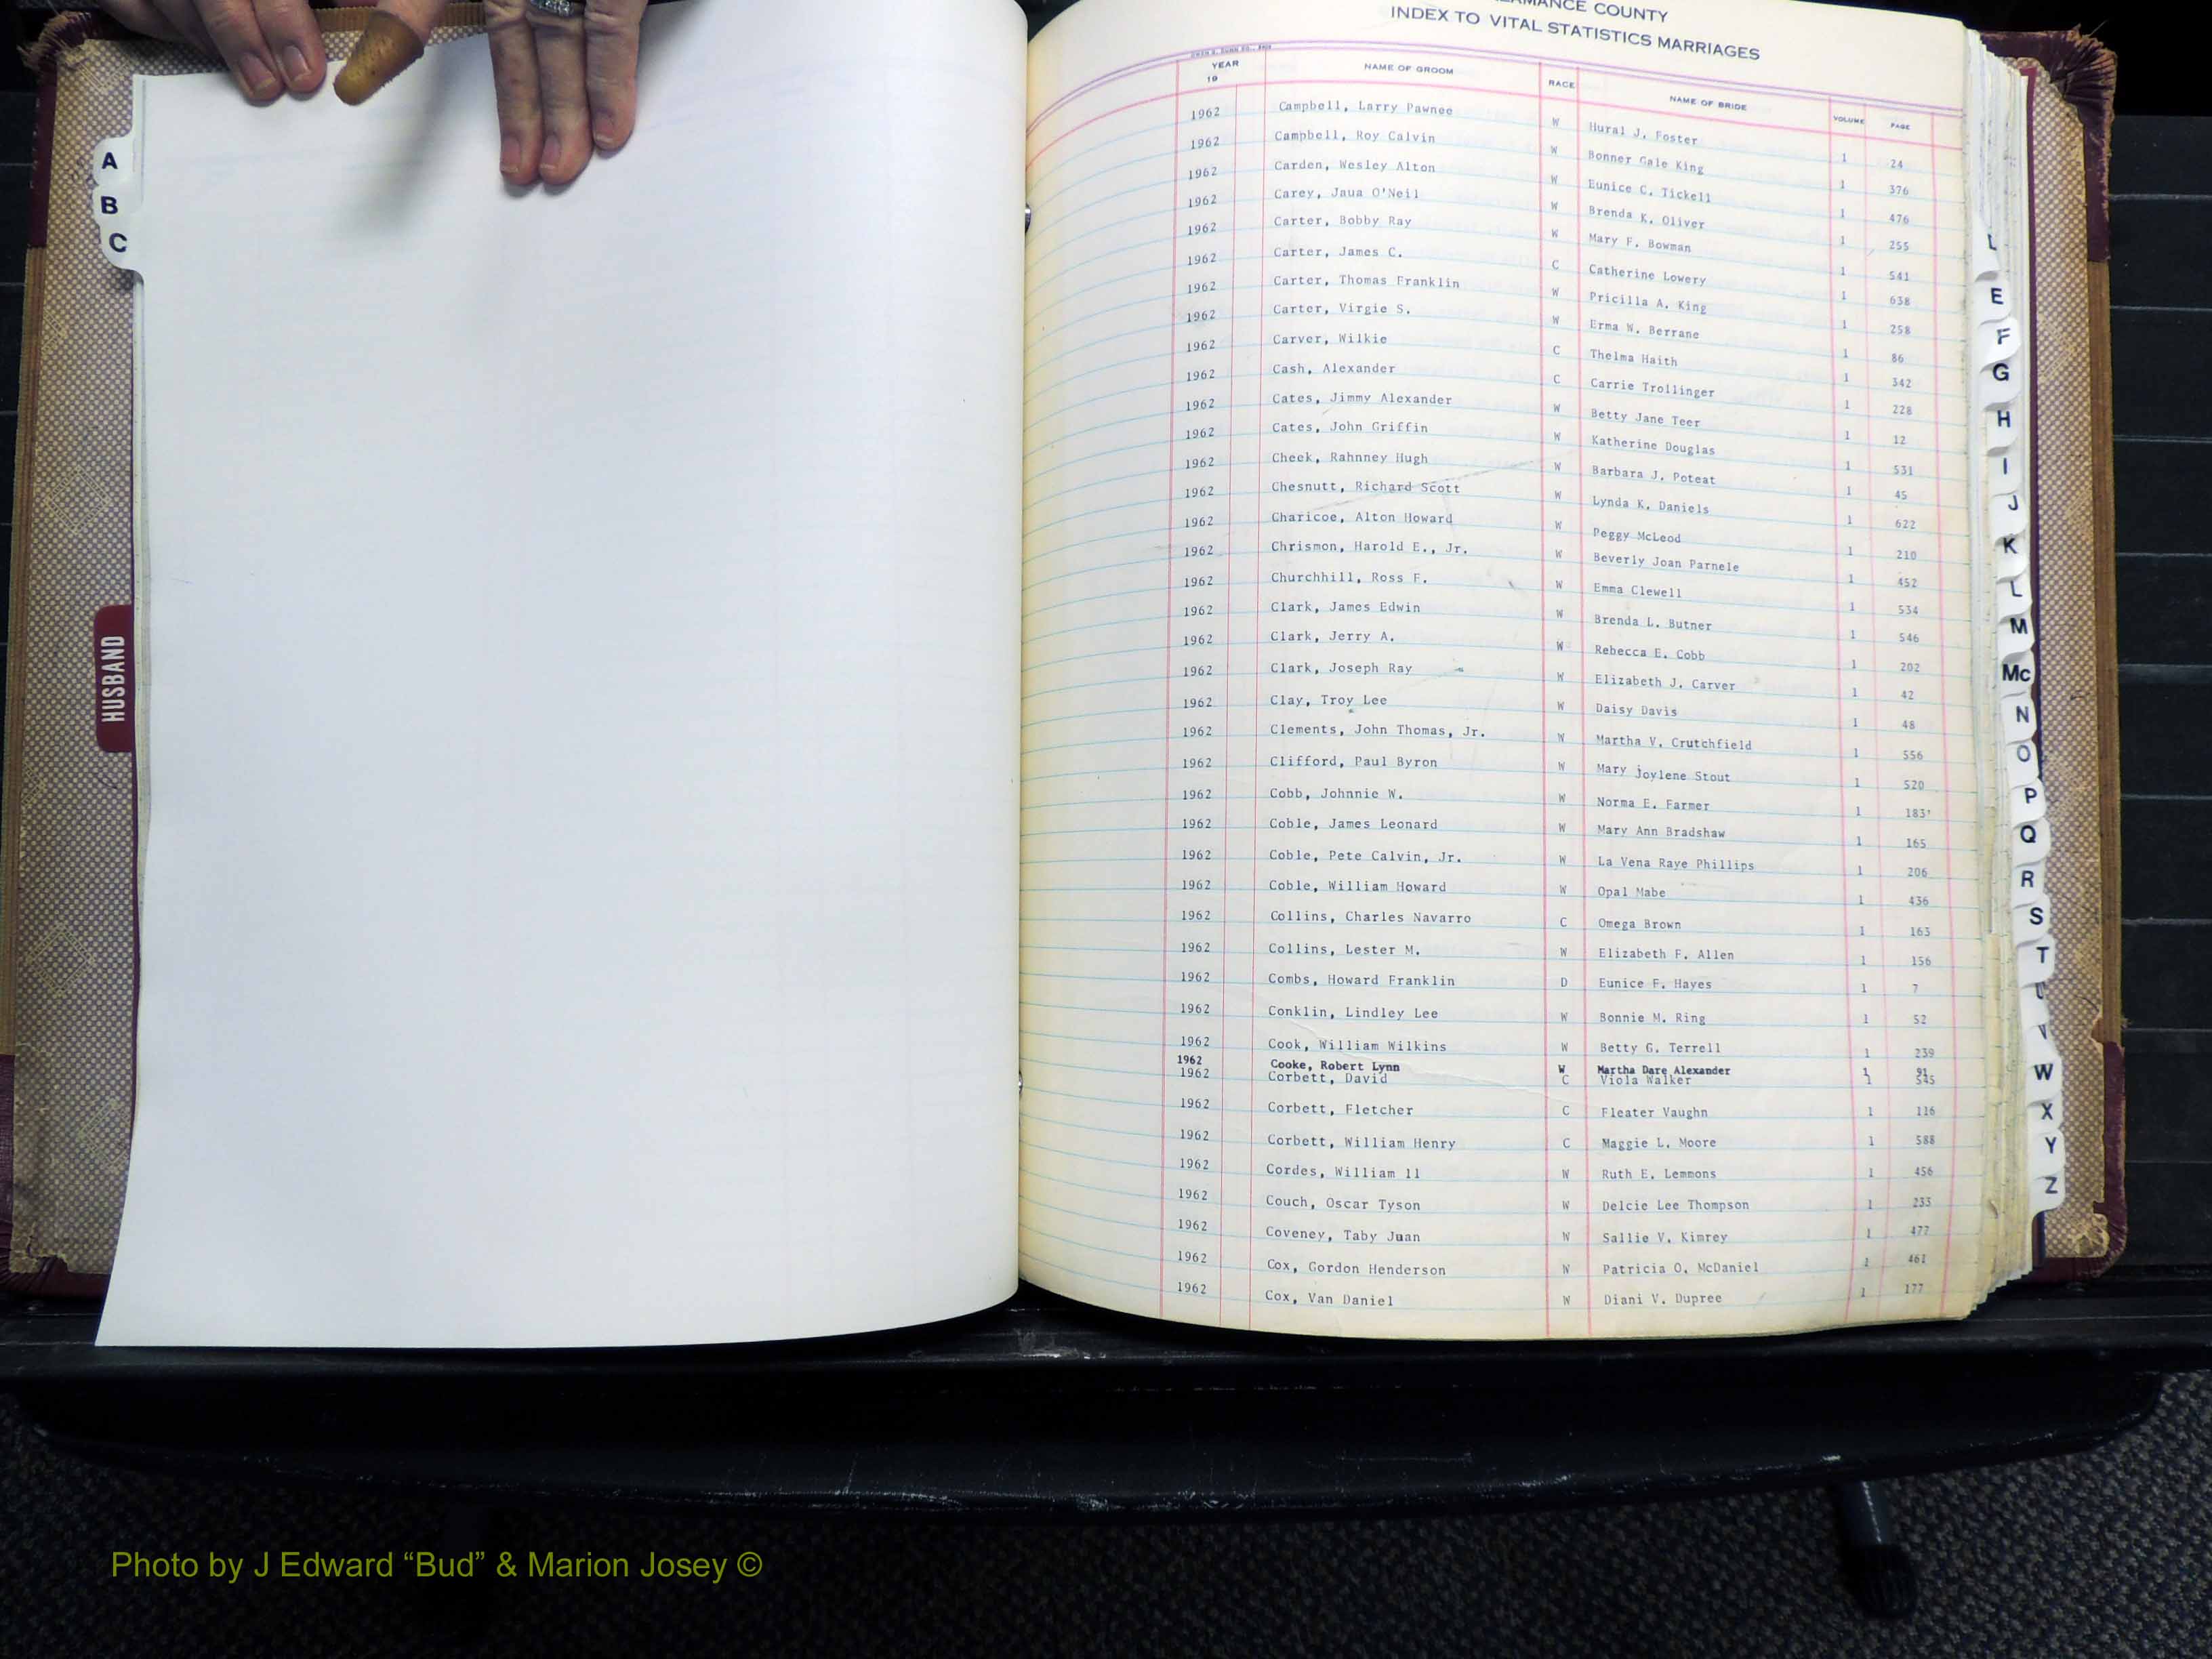 A
B
C
HUSBAND
COUNTY
INDEX TO VITAL STATISTICS MARRIAGES
YEAR 19 NAME OF GROOM RACE NAME OF BRIDE VOLUME PAGE
1962 Campbell, Larry Pawnee W Hural J. Foster 1 24
1962 Campbell, Roy Calvin W Bonner Gale King 1 376
1962 Carden, Wesley Alton W Eunice C. Tickell 1 476
1962 Carey, Jaua O'Neil W Brenda K. Oliver 1 255
1962 Carter, Bobby Ray W Mary F. Bowman 1 541
1962 Carter, James C. C Catherine Lowery 1 638
1962 Carter, Thomas Franklin W Pricilla A. King 1 258
1962 Carter, Virgie S. W Erma W. Berrane 1 86
1962 Carver, Wilkie C Thelma Haith 1 342
1962 Cash, Alexander C Carrie Trollinger 1 228
1962 Cates, Jimmy Alexander W Betty Jane Teer 1 12
1962 Cates, John Griffin W Katherine Douglas 1 531
1962 Cheek, Rahnney Hugh W Barbara J. Poteat 1 45
1962 Chesnutt, Richard Scott W Lynda K. Daniels 1 622
1962 Charicoe, Alton Howard W Peggy McLeod 1 210
1962 Chrismon, Harold E., Jr. W Beverly Joan Parnele 1 452
1962 Churchhill, Ross F. W Emma Clewell 1 534
1962 Clark, James Edwin W Brenda L. Butner 1 546
1962 Clark, Jerry A. W Rebecca E. Cobb 1 202
1962 Clark, Joseph Ray W Elizabeth J. Carver 1 42
1962 Clay, Troy Lee W Daisy Davis 1 48
1962 Clements, John Thomas, Jr. W Martha V. Crutchfield 1 556
1962 Clifford, Paul Byron W Mary Joylene Stout 1 520
1962 Cobb, Johnnie W. W Norma E. Farmer 1 183'
1962 Coble, James Leonard W Mary Ann Bradshaw 1 165
1962 Coble, Pete Calvin, Jr. W La Vena Raye Phillips 1 206
1962 Coble, William Howard W Opal Mabe 1 436
1962 Collins, Charles Navarro C Omega Brown 1 163
1962 Collins, Lester M. W Elizabeth F. Allen 1 156
1962 Combs, Howard Franklin D Eunice F. Hayes 1 7
1962 Conklin, Lindley Lee W Bonnie M. Ring 1 52
1962 Cook, William Wilkins W Betty G. Terrell 1 239
1962 Cooke, Robert Lynn W Martha Dare Alexander 1 91
1962 Corbett, David C Viola Walker 1 545
1962 Corbett, Fletcher C Fleater Vaughn 1 116
1962 Corbett, William Henry C Maggie L. Moore 1 588
1962 Cordes, William 11 W Ruth E. Lemmons 1 456
1962 Couch, Oscar Tyson W Delcie Lee Thompson 1 233
1962 Coveney, Taby Juan W Sallie V. Kimrey 1 477
1962 Cox, Gordon Henderson W Patricia O. McDaniel 1 461
1962 Cox, Van Daniel W Diani V. Dupree 1 177
E
F
G
H
I
J
K
L
M
Mc
N
O
P
Q
R
S
T
U
V
W
X
Y
Z
Photo by J Edward “Bud” & Marion Josey ©